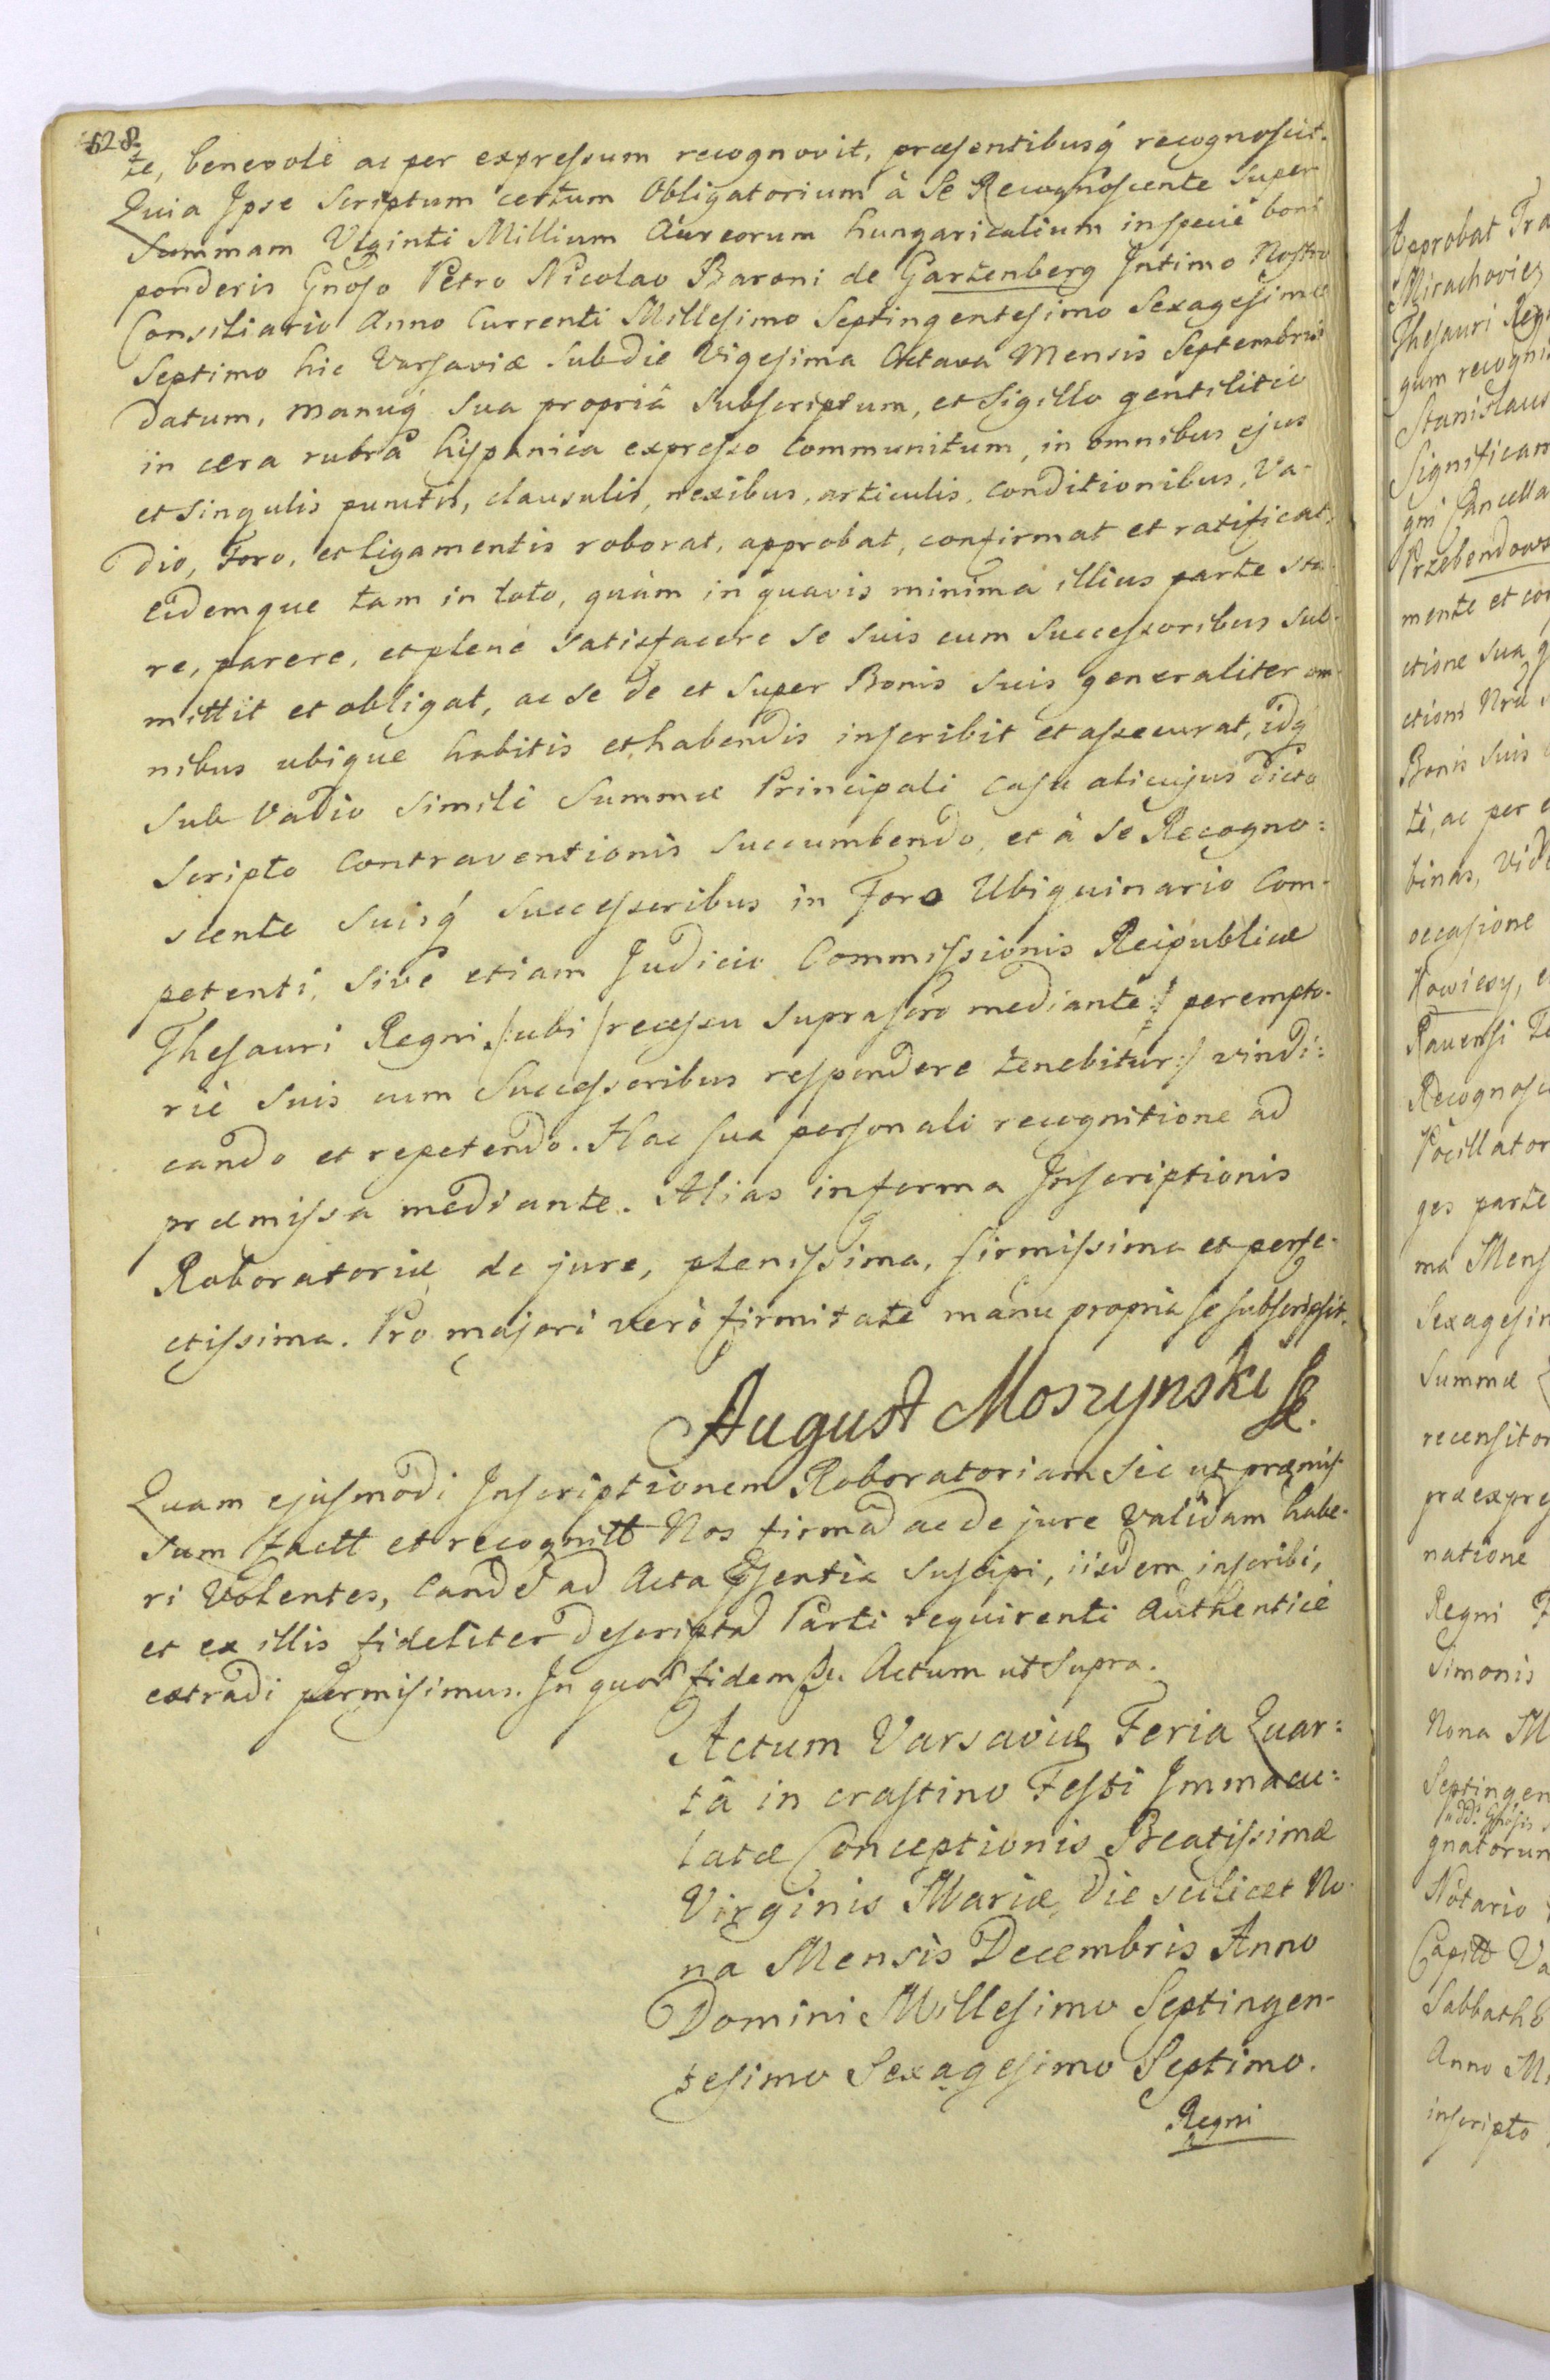 528.
te, benevole ac per expressum recognovit, præsentibusq́ recognoscit.
Quia Ipse Scriptum certum Obligatorium à Se Recognoscente Super
Summam Viginti Millium Aureorum hungaricalium in specie boni
ponderis Gnoso Petro Nicolao Baroni de Gartzenberg Intimo Nostro
Consiliario Anno Currenti Millesimo Septingentesimo Sexagesimo
Septimo hic Varsaviæ sub die Vigesima Octava Mensis Septembris
datum, manuq́ sua propriâ subscriptum, et Sigillo gentilitio
in cera rubrâ hispanica expresso Communitum, in omnibus ejus
et singulis punctis, clausulis, nexibus, articulis, conditionibus, Va-
dio, Foro, et ligamentis roborat, approbat, confirmat et ratificat,
Eidemque tam in toto, quàm in quavis minima illius parte sta-
re, parere, et plene satisfacere se suis cum successoribus sub-
mittit et obligat, ac se de et super Bonis suis generaliter om-
nibus ubique habitis et habendis inscribit et assecurat, idq́
sub Vadio simili Summæ Principali casu alicujus dicto
Scripto Contraventionis succumbendo, et à Se Recogno:
scente suisq́ successoribus in Foro Ubiquinario Com-
petenti, sive etiam Judicio Commissionis Reipublicæ
Thesauri Regni /:ubi /recessu suprascro mediante:/ perempto-
riè suis cum Successoribus respondere tenebitur:/ vindi:
cando et repetendo. Hac sua personali recognitione ad
præmissa mediante. Alias in forma Inscriptionis
Roboratoriæ de jure, plenissima, firmissima et perfe-
ctissima. Pro majori verò firmitate manu propria se subscripsit.
August Moszynski
Quam ejusmodi Inscriptionem Roboratoriam sic ut præmis-
sum factt et recognitt Nos firmâ ac de jure Validam habe-
ri Volentes, Eand ad Acta suscipi, iisdem inscribi,
et ex illis fideliter descriptâ Parti requirenti Authenticè
extradi permisimus. In quor fidem Actum ut supra.
Actum Varsaviæ Feria Quar:
tâ in crastino Festi Immacu:
latæ Conceptionis Beatissimæ
Virginis Mariæ, die scilicet No-
na Mensis Decembris Anno
Domini Millesimo Septingen-
tesimo Sexagesimo Septimo.
Regni